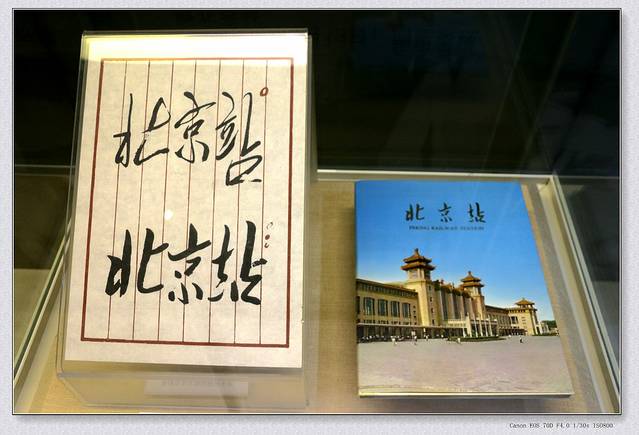 北京站
北京站
北京站
PEKING RAILWAY STATION
Canon EOS 70D F4.0 1/30s ISO800